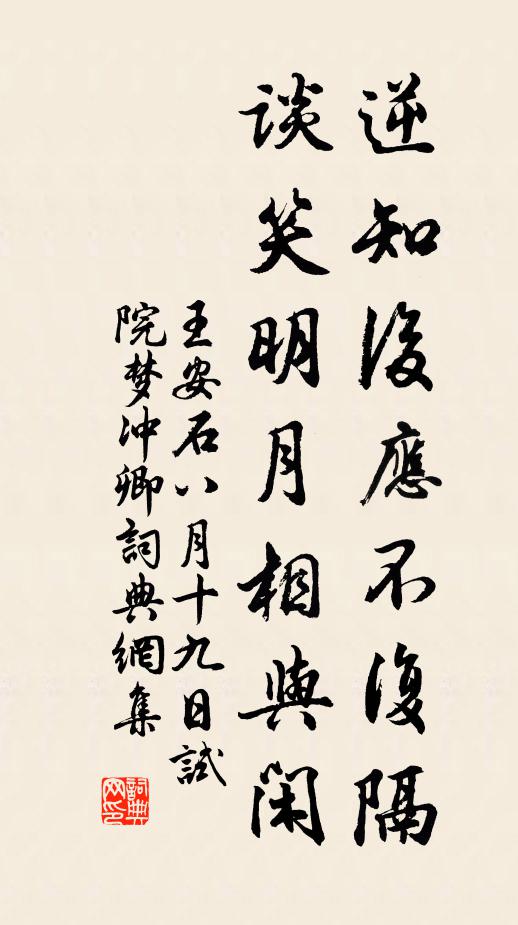 逆知後應不復隔
談笑明月相與閑
王安石八月十九日試
院梦冲卿詞典網集
詞典
网印